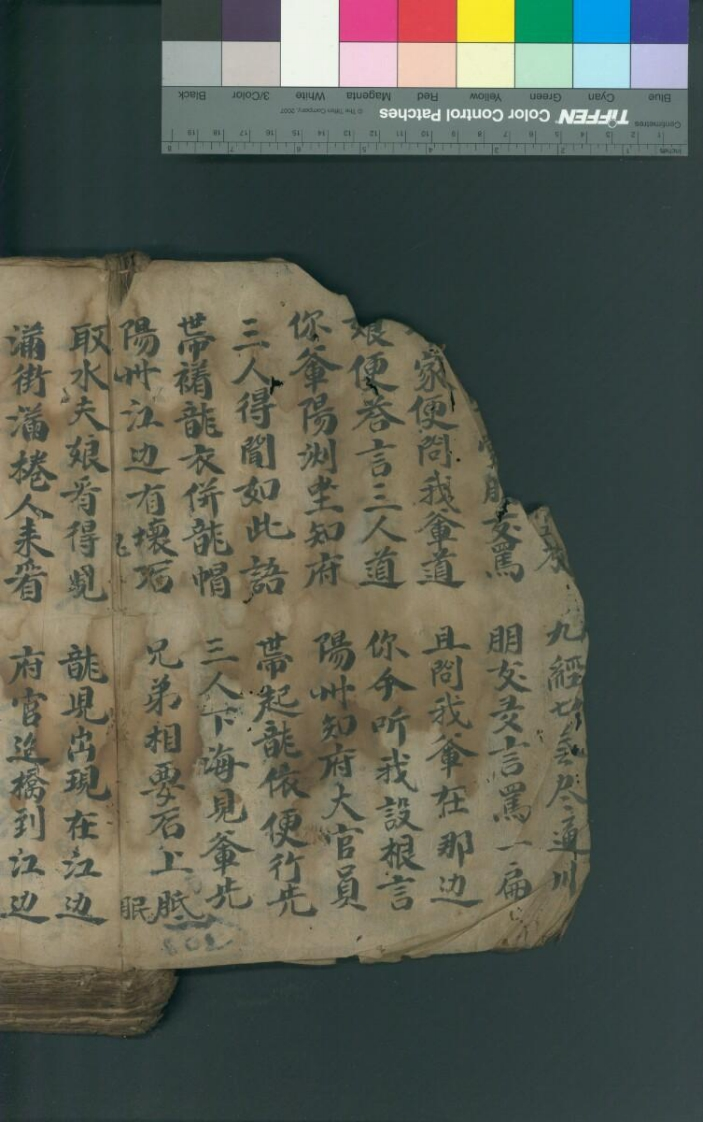 九經七 尽通川
朋友罵
朋友爻言罵一扁
家便問我爺道
且問我爺在那边
娘便答言三人道
你今听我設根言
你爺陽洲坐知府
陽州知府大官員
三人得聞如此語
三人下海見爺先
帶褚龍衣併龍帽
帶起龍依便行先
陽州江边有壞石
兄弟相要石上眂
眠
取水夫娘看得見
龍現出現在江边
滿街滿棬人来看
府官迄橋到江边
Blue
Cyan
Green
Yellow
Red
Magenta
White
3/Color
Black
TIFFEN Color Control Patches
© The Tiffen Company, 2007
Centimetres
Inches